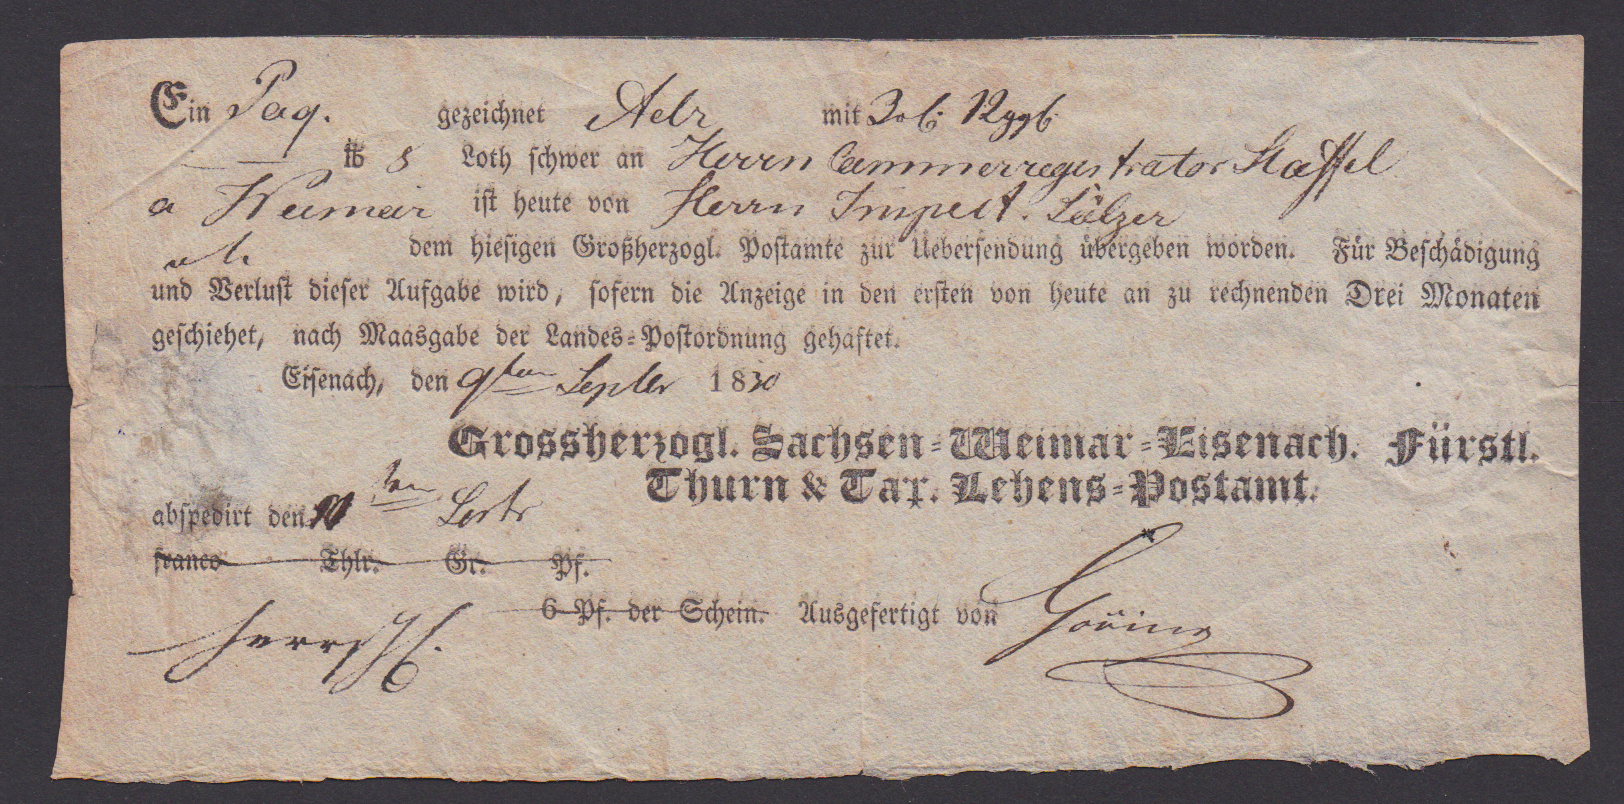 Ein Paq. gezeichnet Adr mit 12 ggl.
℔ 8 Loth schwer an Herrn Cammerregistrator Staffel
a Weimar ist heute von Herrn Inspect. Sälzer
dem hiesigen Großherzogl. Postamte zur Uebersendung übergeben worden. Für Beschädigung
und Verlust dieser Aufgabe wird, sofern die Anzeige in den ersten von heute an zu rechnenden Drei Monaten
geschiehet, nach Maasgabe der Landes-Postordnung gehaftet.
Eisenach, den 9ten Septbr 1830
Grossherzogl. Sachsen-Weimar-Eisenach. Fürstl.
Thurn & Tax. Lehens-Postamt.
abspedirt den 10ten
franco Thlr. Gr. Pf.
6 Pf. der Schein. Ausgefertigt von Göring